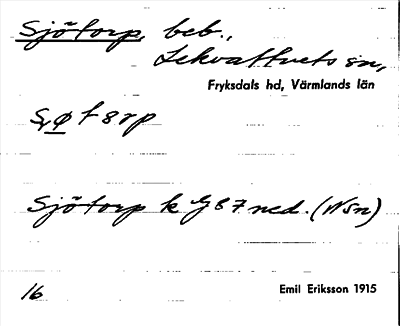 Sjötorp, beb.,
Lekvattnets sn,
Fryksdals hd, Värmlands län
Sjötorp k
ned. (NSn)
16
Emil Eriksson 1915